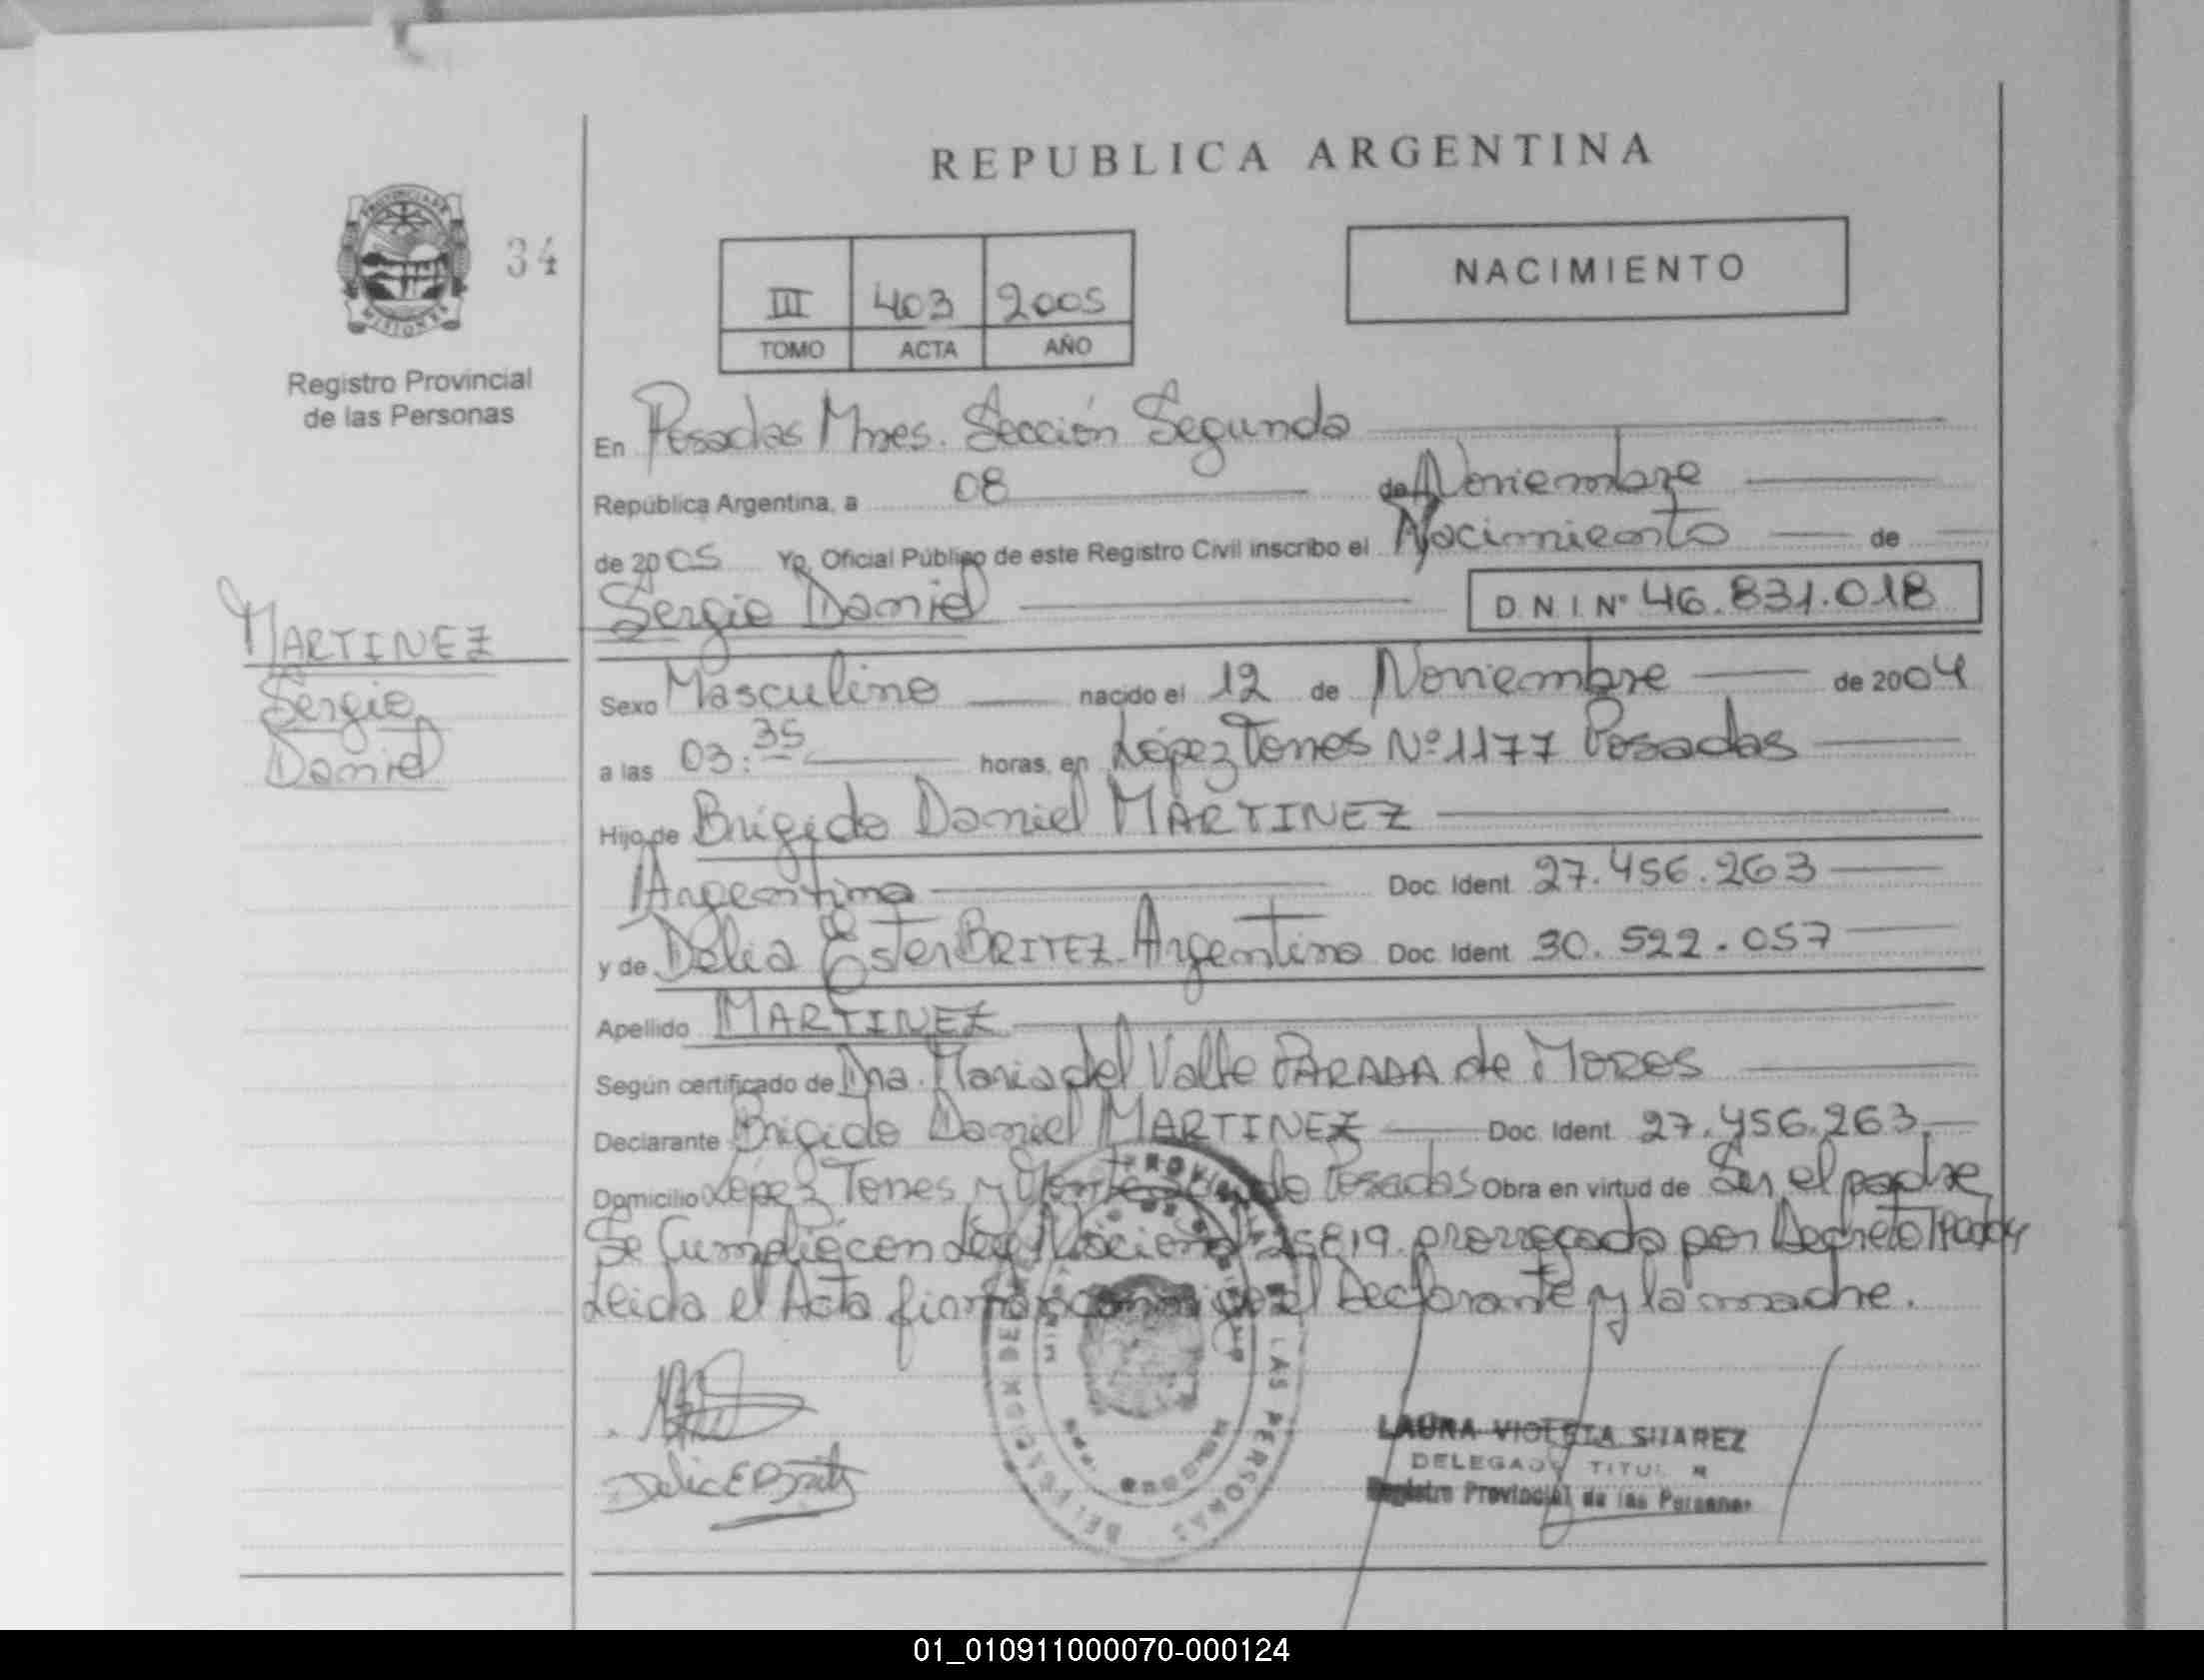 REPUBLICA ARGENTINA
PROVINCIA DE
MISIONES
34
Registro Provincial
de las Personas
III 403 2005
TOMO ACTA AÑO
NACIMIENTO
En Posadas Mnes. Sección Segunda
República Argentina, a 08 de Noviembre
de 2005 Yo, Oficial Público de este Registro Civil inscribo el Nacimiento de
Sergio Daniel D.N.I. Nº 46.831.018
MARTINEZ
Sergio
Daniel
Sexo Masculino nacido el 12 de Noviembre de 2004
a las 03:35 horas, en López Torres Nº 1177 Posadas
Hijo de Brigido Daniel MARTINEZ
Argentino Doc. Ident. 27.456.263
y de Delia Ester BRITEZ-Argentina Doc. Ident. 30.522.057
Apellido MARTINEZ
Según certificado de Dna. Maria del Valle PARADA de
Declarante Brigido Daniel MARTINEZ Doc. Ident. 27.456.263
Domicilio López Torres y Posadas Obra en virtud de Ser el padre
Se Cumplió con Ley Nacional 25819 prorrogada por Decreto
Leida el Acta firman conmigo el Declarante y la madre.
Delia E Britez
DELEGACION DE LAS PERSONAS
LAURA VIOLETA SUAREZ
DELEGADA TITULAR
Registro Provincial de las Personas
01_010911000070-000124